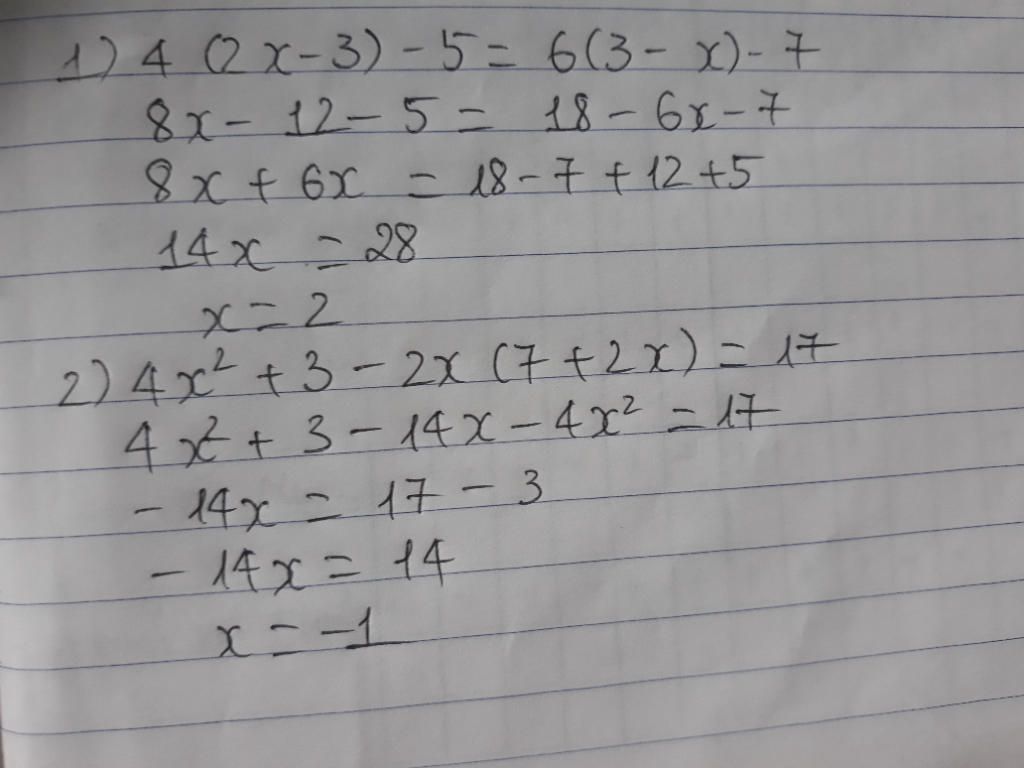 1) 4 (2x - 3) - 5 = 6(3 - x) - 7
8x - 12 - 5 = 18 - 6x - 7
8x + 6x = 18 - 7 + 12 + 5
14x = 28
x = 2
2) 4x² + 3 - 2x (7 + 2x) = 17
4x² + 3 - 14x - 4x² = 17
- 14x = 17 - 3
- 14x = 14
x = -1